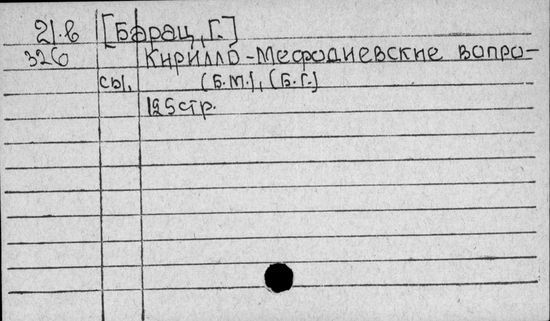 21.в [Барац, Г.]
326 Кирилло-Мефодиевские вопро-
сы, (Б.М.), (Б.Г.)
125стр.